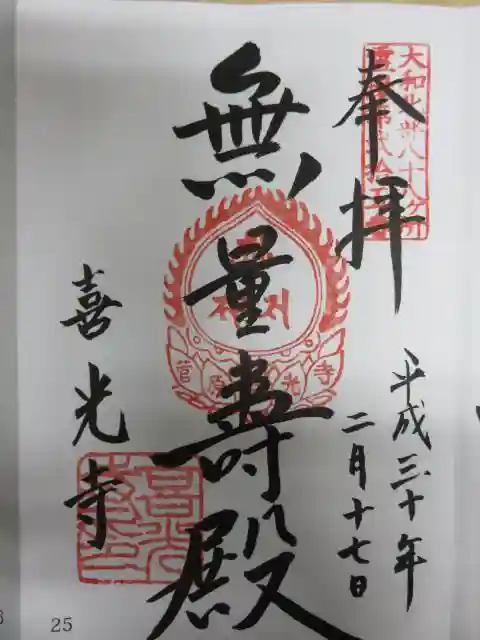 奉拝
大和北部八十八ヶ所
霊場第弐拾五番
平成三十年
二月十七日
無量壽殿
菅原 光寺
喜光寺
25